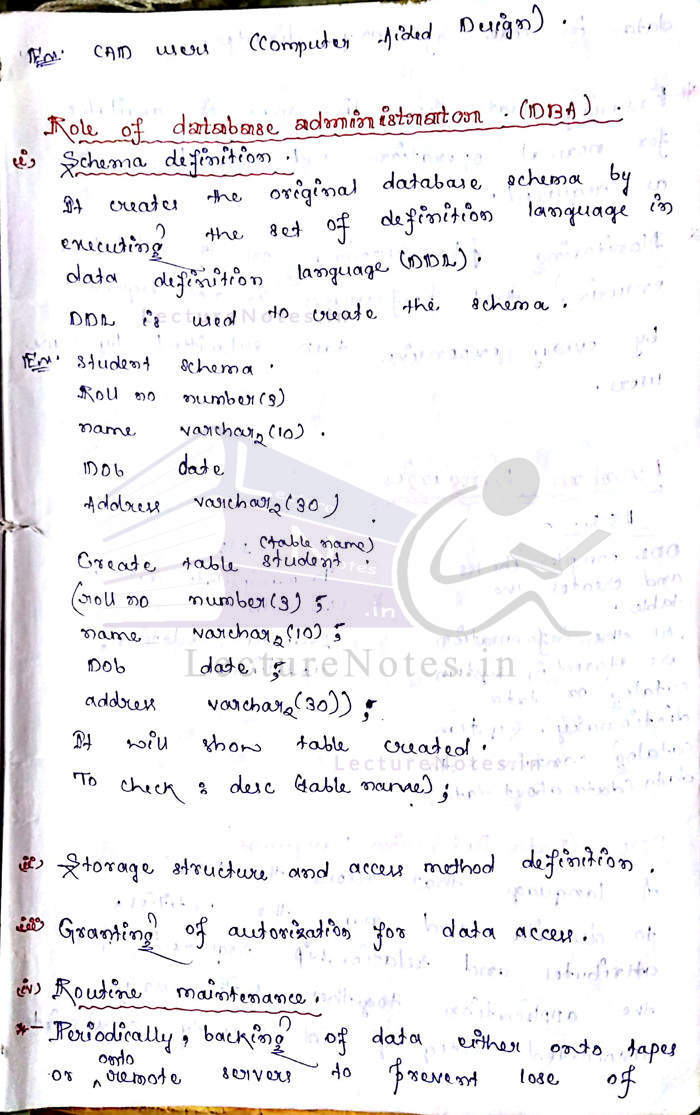 Ex: CAD users (Computer Aided Design).
Role of database administrator. (DBA).
i) Schema definition.
It creates the original database schema by
executing the set of definition language in
data definition language (DDL).
DDL is used to create the schema.
Ex: Student schema.
Roll no number(3)
name varchar2(10).
DOb date
Address varchar2(30)
(table name)
Create table student
(roll no number(3);
name varchar2(10);
DOb date;
LectureNotes.in
address varchar2(30));
It will show table created.
LectureNotes.in
To check : desc (table name);
ii) Storage structure and access method definition.
iii) Granting of autorization for data access.
iv) Routine maintenance.
*- Periodically, backing of data either onto tapes
onto
or remote servers to prevent lose of